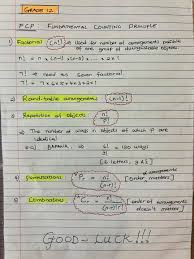 GRADE 12
FCP : FUNDAMENTAL COUNTING PRINCIPLE
1) Factorial (n!) is used for number of arrangements possible
of any group of distinguishable objects.
n! = n × (n-1) × (n-2) × ... 2 × 1
7! → read as seven factorial
7! = 7×6×5×4×3×2×1
2) Round-table arrangement (n-1)!
3) Repetition of objects n!/p!
→ The number of ways n objects of which p are
identical
e.g) BANANA ⇒ 6!/3! = 120 ways
[6 letters, 3 A's]
4) Permutations nPr = n!/(n-r)! [order matters]
5) Combinations nCr = n!/(n-r)!r! [order of arrangements
doesn't matter]
GOOD-LUCK!!!